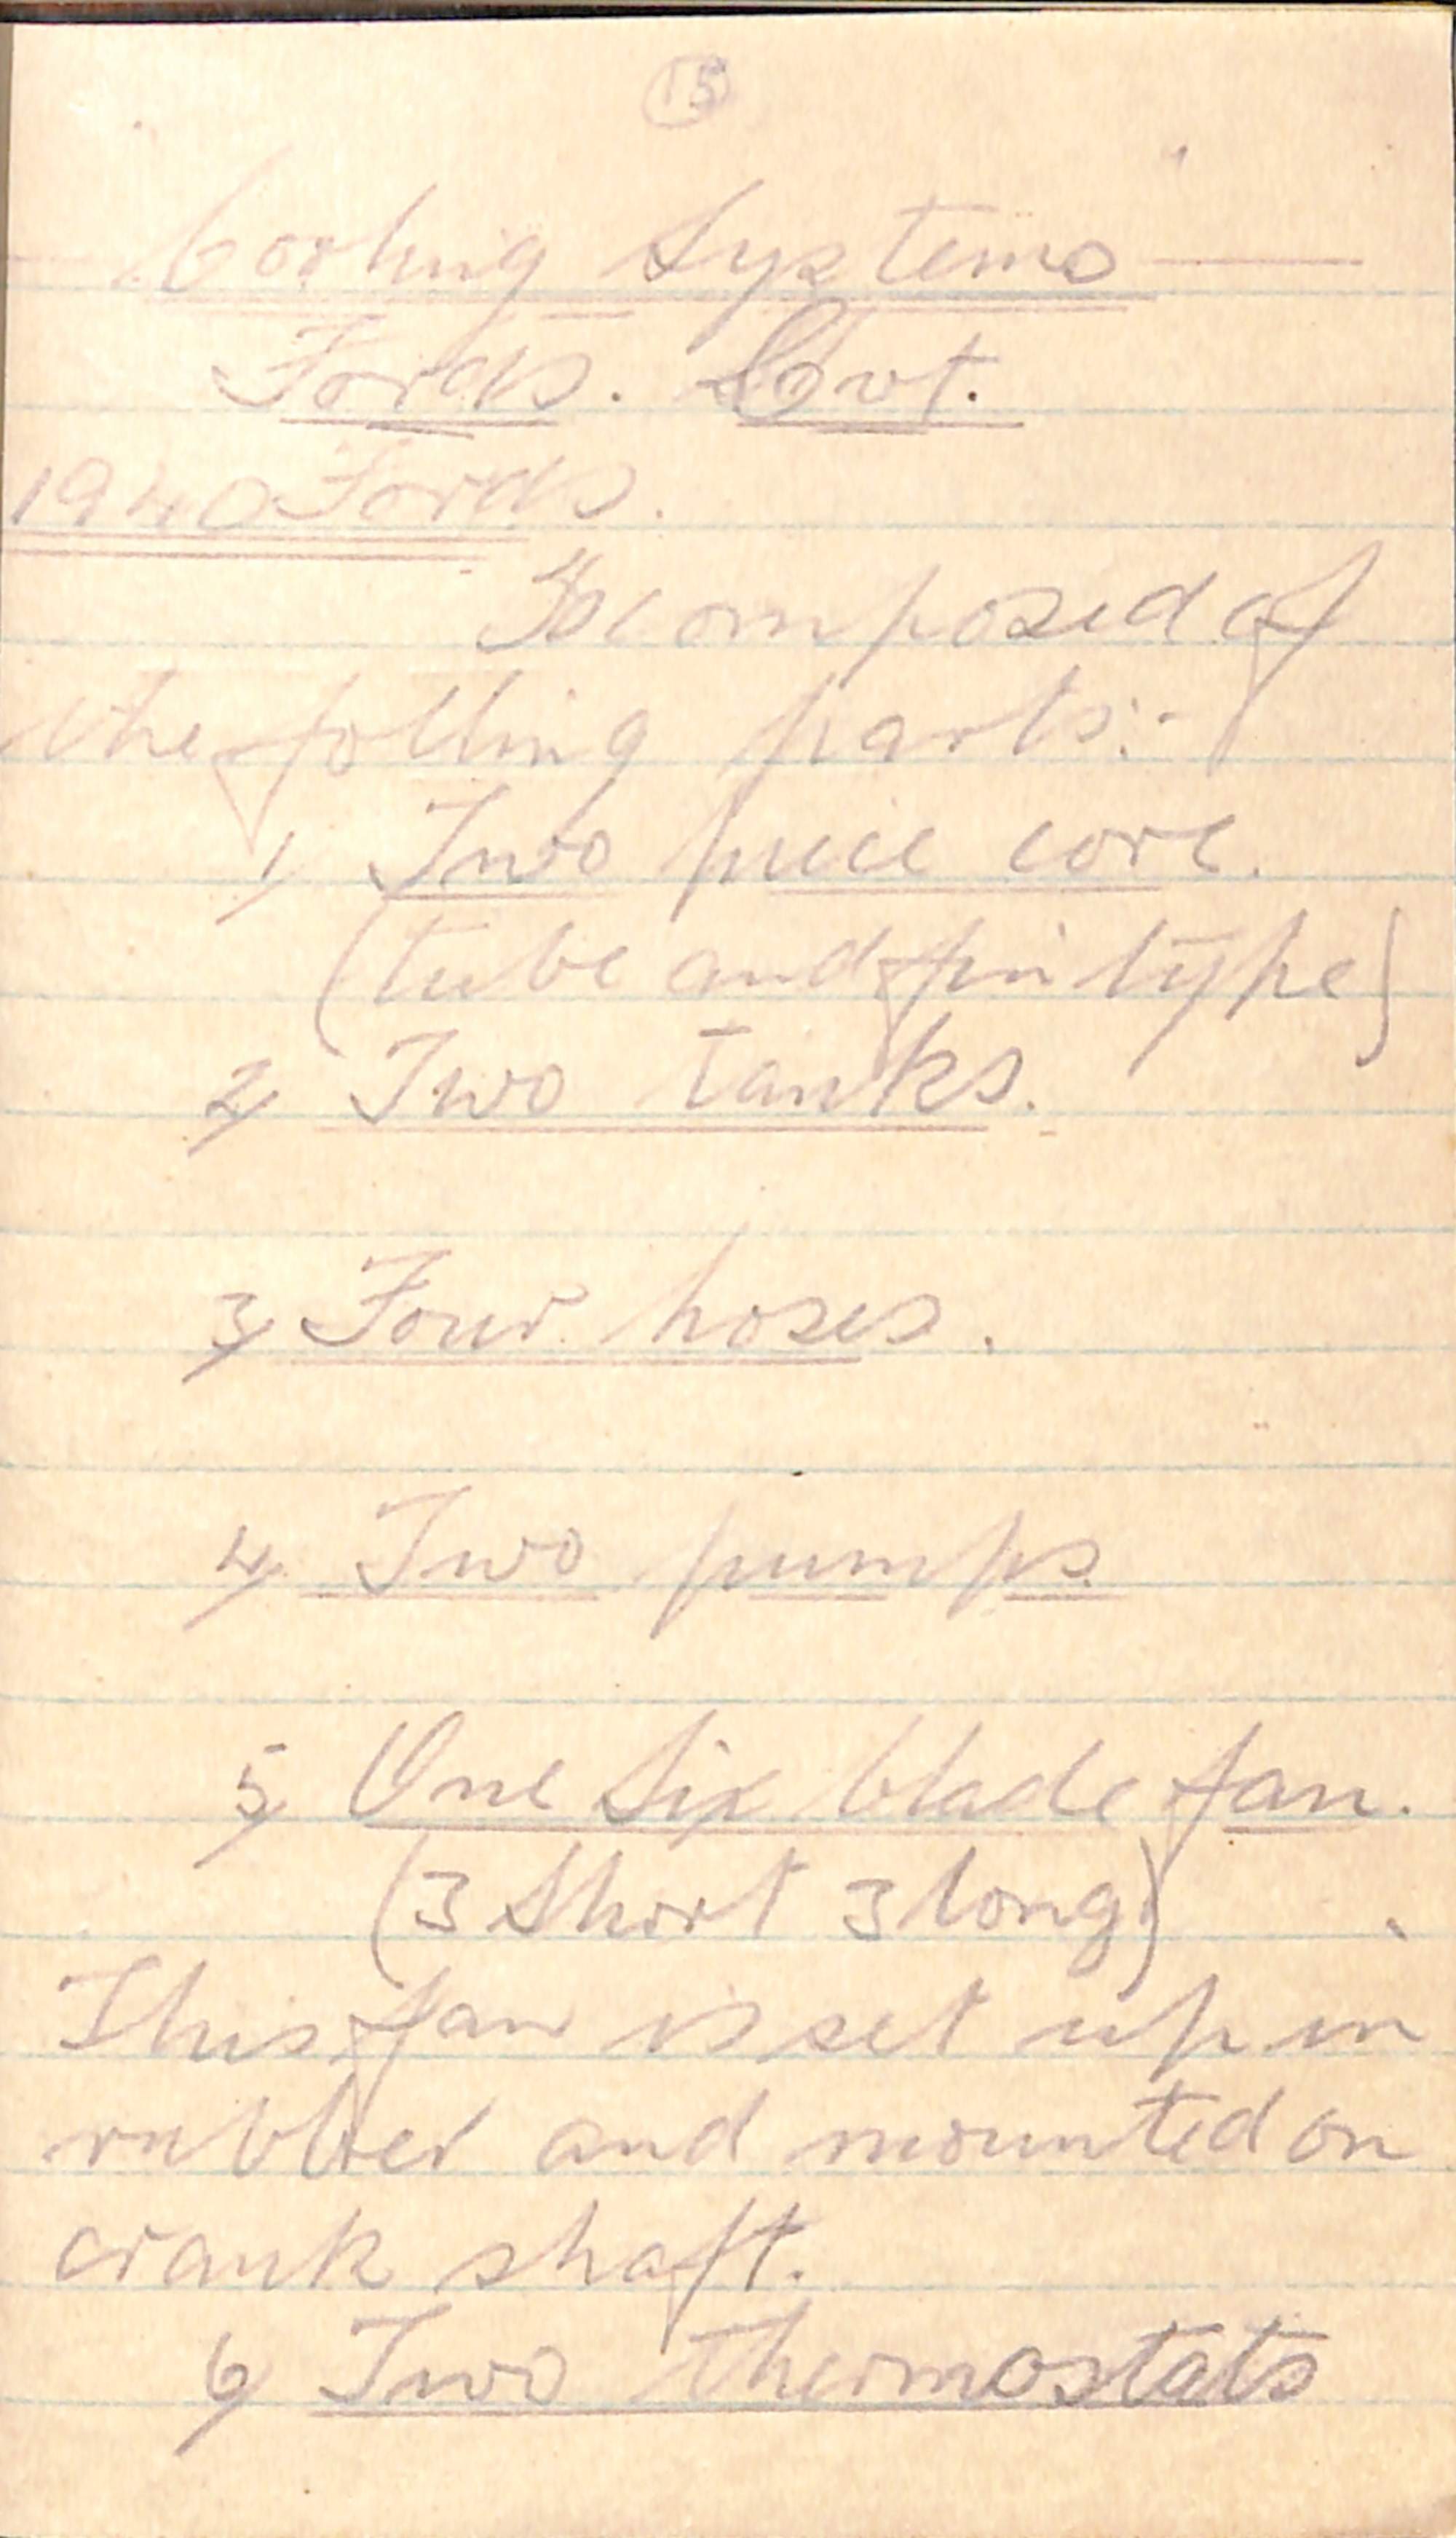 15
Cooling Systems
Fords. Cvt.
1940 Fords.
Is composed of
the folling parts:-
1/ Two piece core.
(tube and fin type)
2/ Two tanks.
3/ Four hoses.
4/ Two pumps.
5/ One Six blade fan.
(3 Short 3 long)
This fan is set up in
rubber and mounted on
crank shaft.
6/ Two thermostats